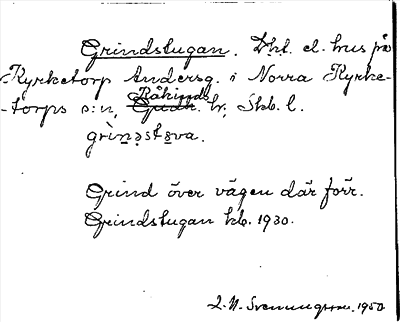 Grindstugan. Lht. el. hus på
Kyrketorp Andersg. i Norra Kyrke-
-torps s:n, Gudh. Kåkinds hr, Skb. l.
grìnəstᴕva.
Grind över vägen där förr.
Grindstugan kb. 1930.
L. N. Svenungsson. 1950